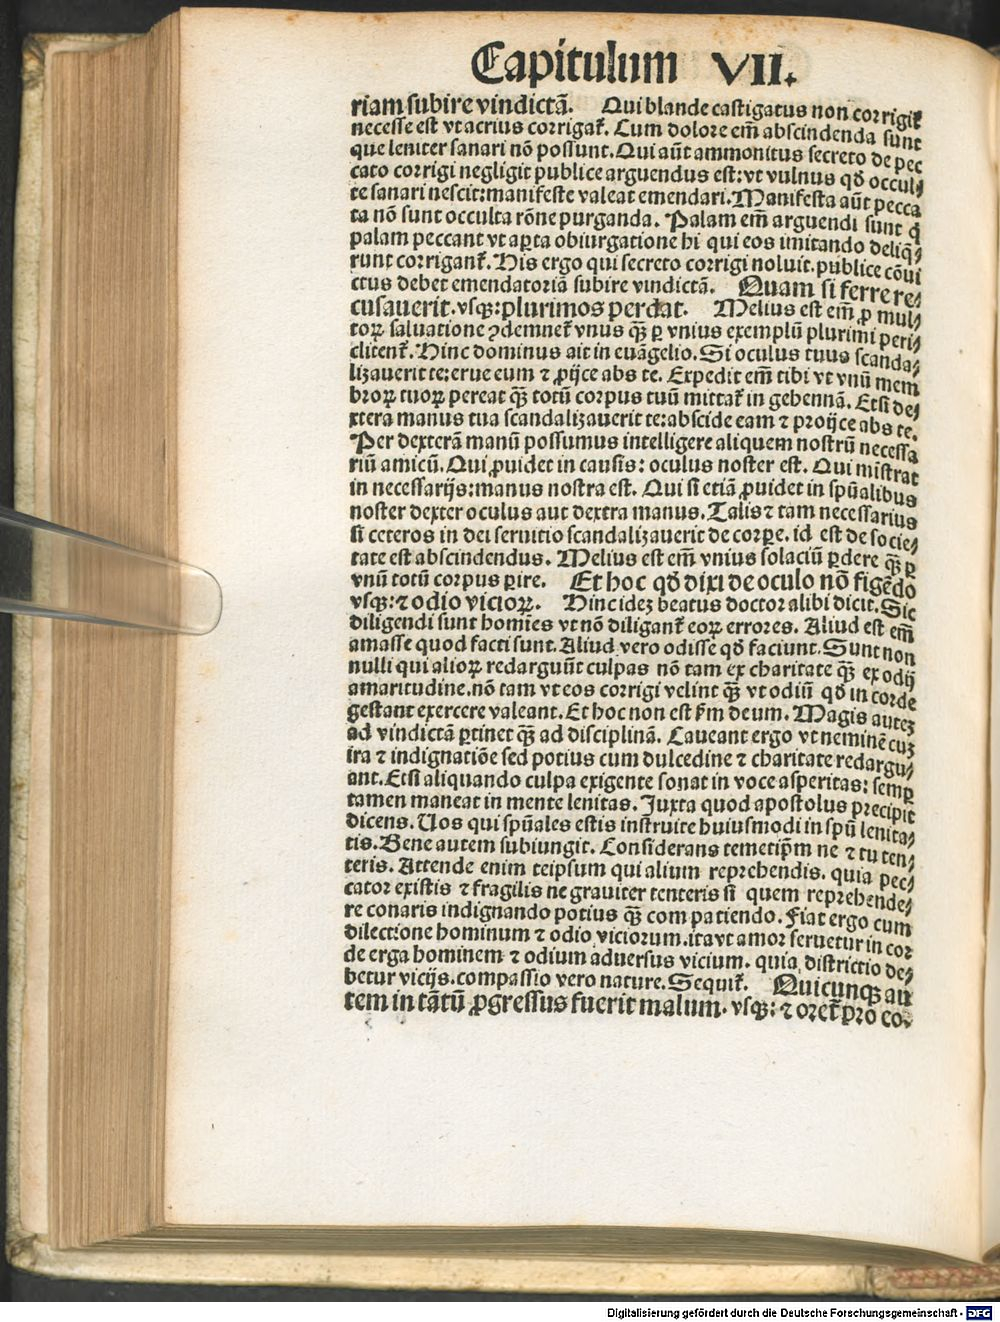 Capitulum VII.
riam subire vindictã. Qui blande castigatus non corrigit̃
necesse est vt acrius corrigat̃. Cum dolore em̃ abscindenda sunt
que leniter sanari nõ possunt. Qui aũt ammonitus secreto de pec
cato corrigi negligit publice arguendus est: vt vulnus qď occul⸗
te sanari nescit: manifeste valeat emendari. Manifesta aũt pecca
ta nõ sunt occulta rõne purganda. Palam em̃ arguendi sunt q̇
palam peccant vt aꝑta obiurgatione hi qui eos imitando deliq̃⸗
runt corrigant̃. His ergo qui secreto corrigi noluit. publice cõui
ctus debet emendatoriã subire vindictã. Quam si ferre re⸗
cusauerit. vsqꝫ: plurimos perdat. Melius est em̃ ꝓ mul⸗
toꝝ saluatione ꝯdemnet̃ vnus qꝫ̃ ꝑ vnius exemplũ plurimi peri⸗
clitent̃. Hinc dominus ait in euãgelio. Si oculus tuus scanda⸗
lizauerit te: erue eum ⁊ ꝓijce abs te. Expedit em̃ tibi vt vnũ mem
broꝝ tuoꝝ pereat qꝫ̃ totũ corpus tuũ mittat̃ in gehennã. Etsi de⸗
xtera manus tua scandalizauerit te: abscide eam ⁊ proijce abs te.
Per dexterã manũ possumus intelligere aliquem nostrũ necessa
riũ amicũ. Qui ꝓuidet in causis: oculus noster est. Qui mĩstrat
in necessarijs: manus nostra est. Qui si etiã ꝓuidet in spũalibus
noster dexter oculus aut dextra manus. Talis ⁊ tam necessarius
si ceteros in dei seruitio scandalizauerit de corꝑe. id est de socie⸗
tate est abscindendus. Melius est em̃ vnius solaciũ ꝑdere qꝫ̃ ꝑ
vnũ totũ corpus ꝑire. Et hoc qď dixi de oculo nõ figẽdo
vsqꝫ: ⁊ odio vicioꝝ. Hinc ideꝫ beatus doctor alibi dicit. Sic
diligendi sunt homĩes vt nõ diligant̃ eoꝝ errores. Aliud est em̃
amasse quod facti sunt. Aliud vero odisse qď faciunt. Sunt non
nulli qui alioꝝ redarguũt culpas nõ tam ex charitate qꝫ̃ ex odij
amaritudine. nõ tam vt eos corrigi velint qꝫ̃ vt odiũ qď in corde
gestant exercere valeant. Et hoc non est s̃m deum. Magis auteꝫ
ad vindictã ꝑtinet qꝫ̃ ad disciplinã. Caueant ergo vt neminẽ cuꝫ
ira ⁊ indignatiõe sed potius cum dulcedine ⁊ charitate redargu⸗
ant. Etsi aliquando culpa exigente sonat in voce asperitas: semꝑ
tamen maneat in mente lenitas. Juxta quod apostolus precipit
dicens. Uos qui spũales estis instruite huiusmodi in spũ lenita⸗
tis. Bene autem subiungit. Considerans temetip̃m ne ⁊ tu ten⸗
teris. Attende enim teipsum qui alium reprehendis. quia pec⸗
cator existis ⁊ fragilis ne grauiter tenteris si quem reprehende⸗
re conaris indignando potius qꝫ̃ compatiendo. Fiat ergo cum
dilectione hominum ⁊ odio viciorum. ita vt amor seruetur in cor
de erga hominem ⁊ odium aduersus vicium. quia districtio de⸗
betur vicijs. compassio vero nature. Sequit̃. Quicunqꝫ au
tem in tãtũ ꝓgressus fuerit malum. vsqꝫ: ⁊ oret̃ pro eo.
Digitalisierung gefördert durch die Deutsche Forschungsgemeinschaft - DFG